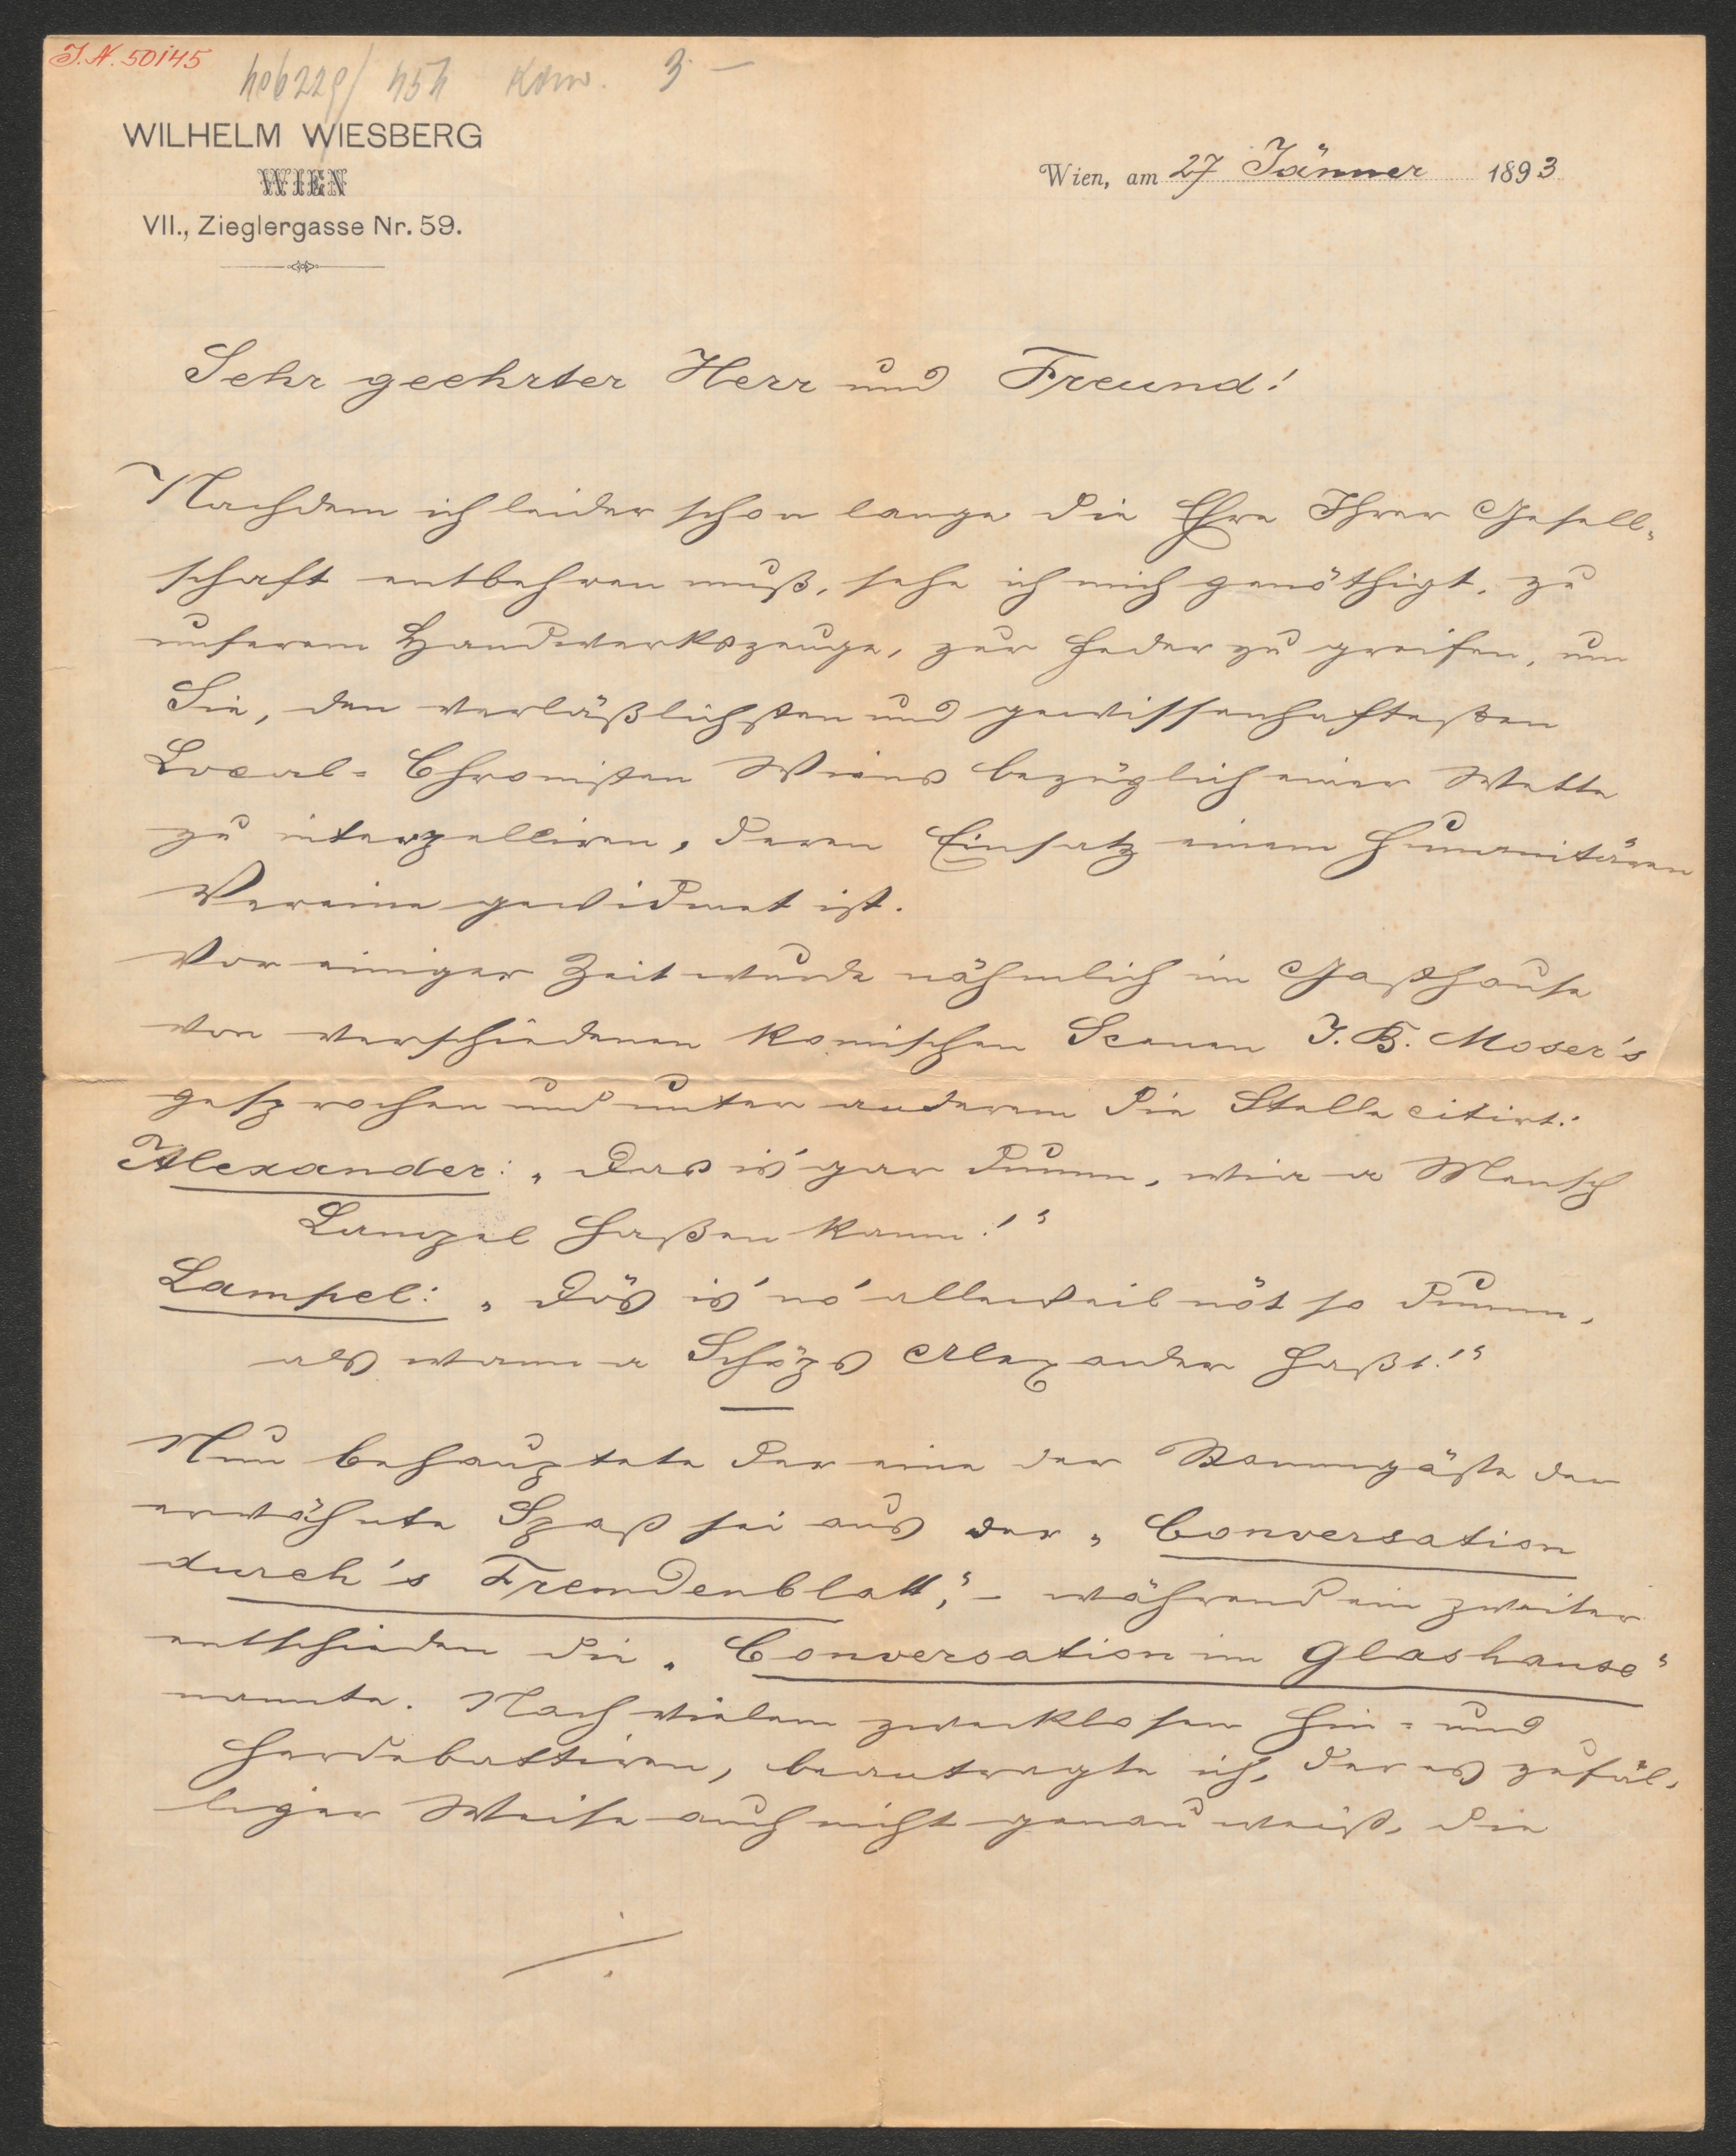 J.N. 50145
WILHELM WIESBERG
WIEN
VII., Zieglergasse Nr. 59.
Wien, am 27 Jänner 1893
Sehr geehrter Herr und Freund!
Nachdem ich leider schon lange die Ehre Ihrer Gesell-
schaft entbehren muß, sehe ich mich genöthigt, zu
unserem Handwerkszeuge, zur Feder zu greifen, um
Sie, den verläßlichsten und gewissenhaftesten
Local-Chronisten Wiens bezüglich einer Wette
zu interpelliren, deren Einsatz einem humanitären
Vereine gewidmet ist.
Vor einiger Zeit wurde nähmlich im Gasthause
von verschiedenen komischen Scenen J. B. Moser's
gesprochen und unter anderem die Stelle citirt:
Alexander: „Das is' gar dumm, wie a Mensch
Lampel haßen kann!"
Lampel: „Dös is' no' alleweil nöt so dumm,
als wann a Schöps Alexander haßt!"
Nun behauptete der eine der Stammgäste der
erwähnte Spaß sei aus der „Conversation
durch's Fremdenblatt", – während ein zweiter
entschieden die „Conversation im Glashause"
nannte. Nach vielem zwecklosen Hin- und
Herdebattiren, beantragte ich, der es zufäl-
liger Weise auch nicht genau weiß, die
./.